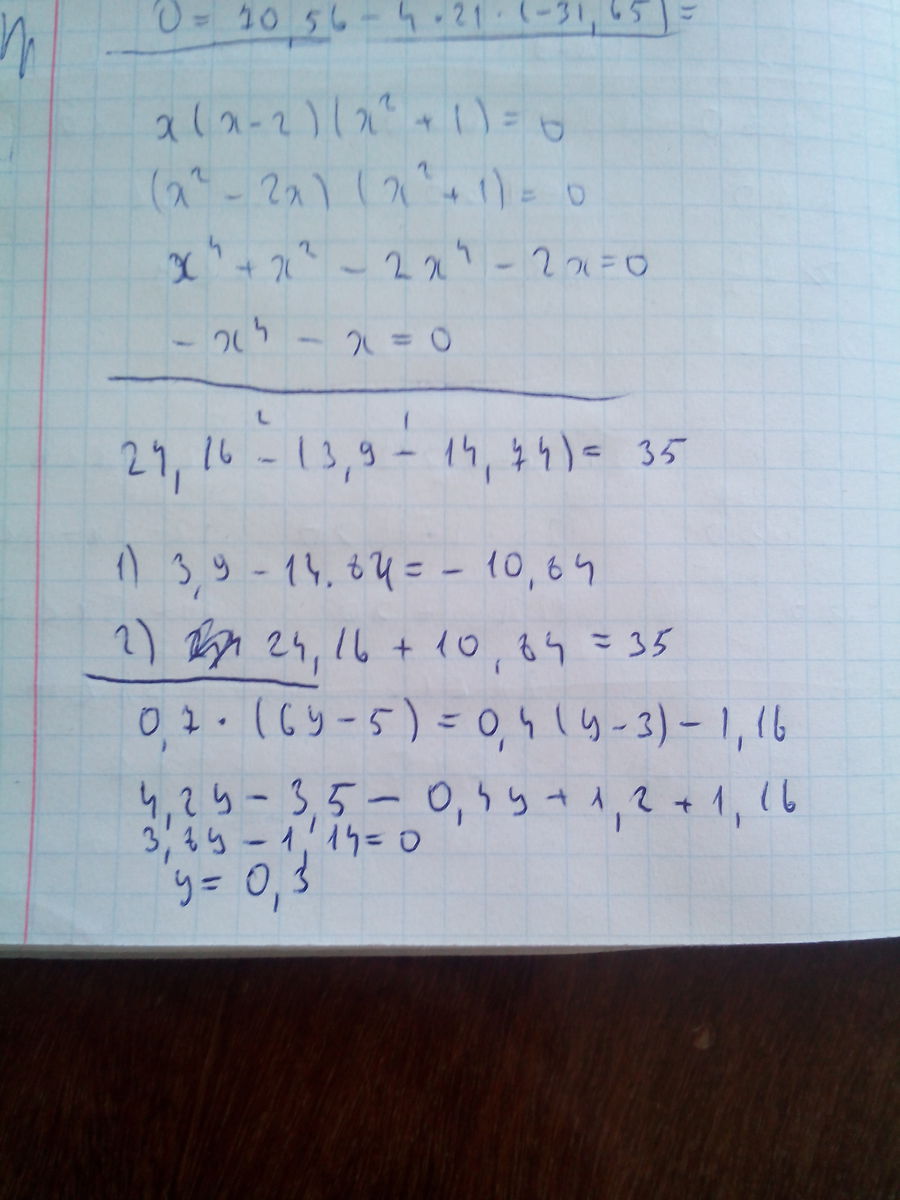 D = 10,56 - 4 · 21 · (-31,65) =
x(x-2)(x² + 1) = 0
(x² - 2x) (x² + 1) = 0
x⁴ + x² - 2x⁴ - 2x = 0
- x⁴ - x = 0
2 1
24,16 - (3,9 - 14,74) = 35
1) 3,9 - 14.84 = - 10,84
2) 24,16 + 10,84 = 35
0,7 · (6y - 5) = 0,4 (y - 3) - 1,16
4,2y - 3,5 - 0,4y + 1,2 + 1,16
3,8y - 1,14 = 0
y = 0,3